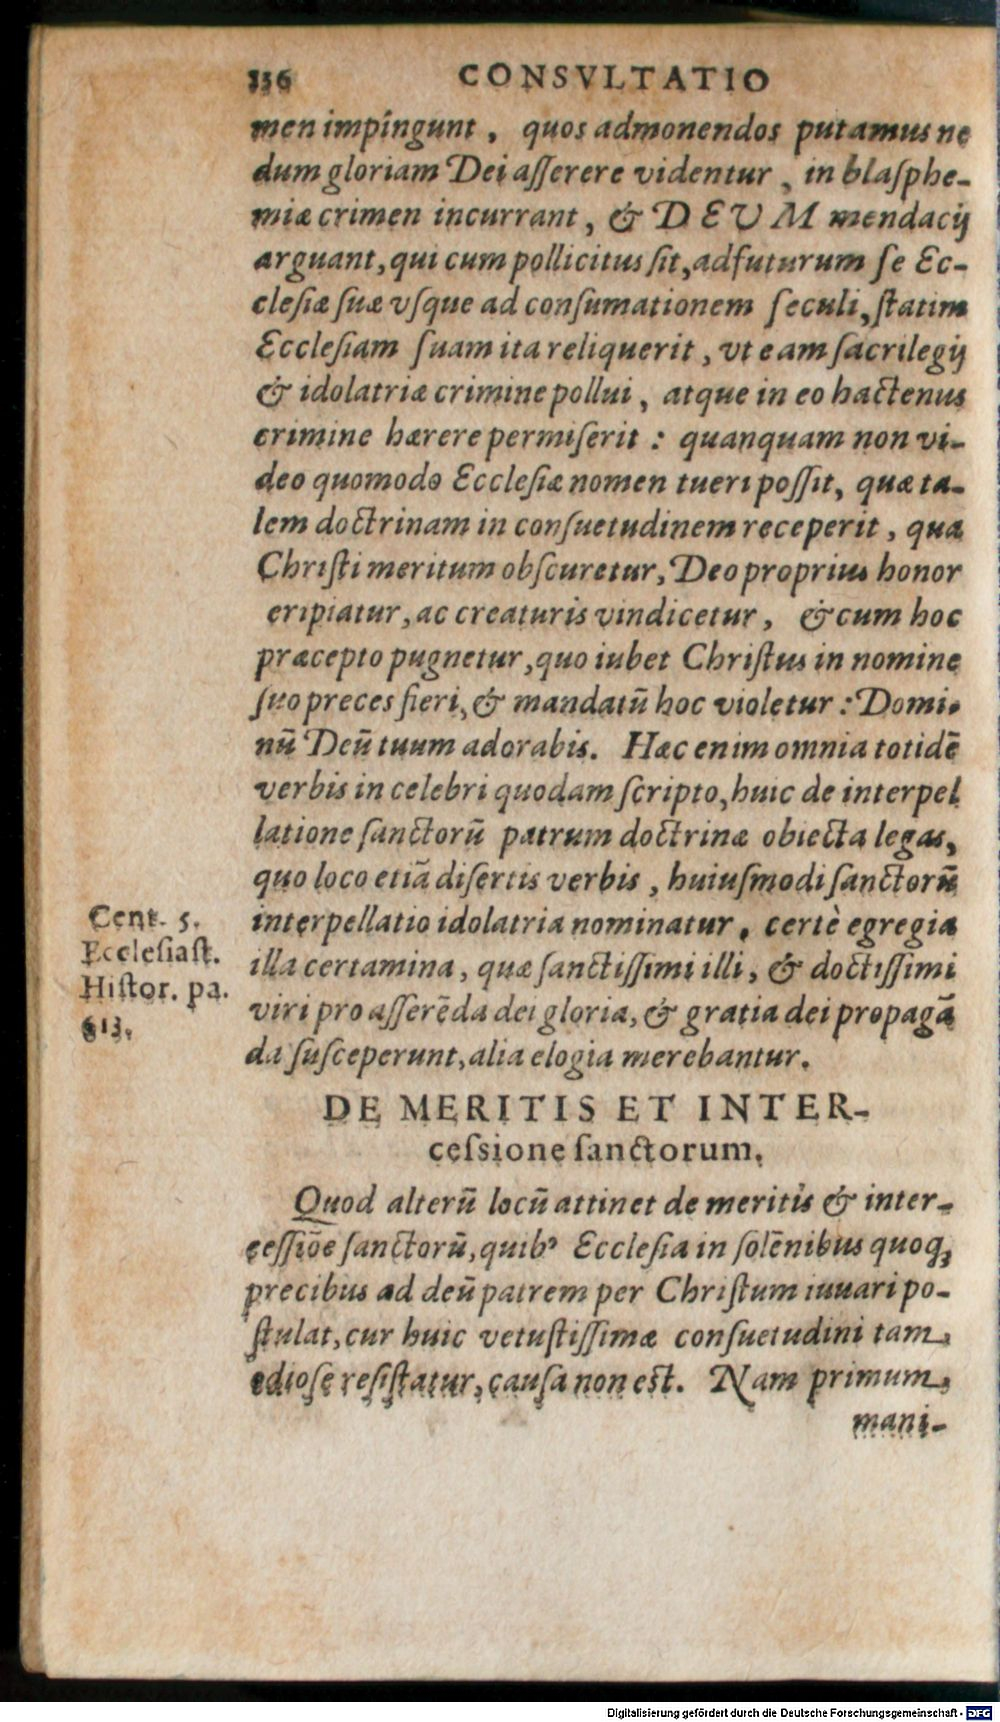 136 CONSVLTATIO
men impingunt, quos admonendos putamus ne
dum gloriam Dei aſſerere videntur, in blaſphe-
miæ crimen incurrant, & DEUM mendacij
arguant, qui cum pollicitus ſit, adfuturum ſe Ec-
cleſiæ ſuæ vſque ad conſumationem ſeculi, ſtatim
Eccleſiam ſuam ita reliquerit, vt eam ſacrilegij
& idolatriæ crimine pollui, atque in eo hactenus
crimine hærere permiſerit: quanquam non vi-
deo quomodo Eccleſiæ nomen tueri poſſit, quæ ta-
lem doctrinam in conſuetudinem receperit, qua
Chriſti meritum obſcuretur, Deo proprius honor
eripiatur, ac creaturis vindicetur, & cum hoc
præcepto pugnetur, quo iubet Chriſtus in nomine
ſuo preces fieri, & mandatū hoc violetur: Domi-
nū Deū tuum adorabis. Hæc enim omnia totidē
verbis in celebri quodam ſcripto, huic de interpel
latione ſanctorū patrum doctrinæ obiecta legas,
quo loco etiā diſertis verbis, huiuſmodi ſanctorū
interpellatio idolatria nominatur, certè egregia
illa certamina, quæ ſanctiſſimi illi, & doctiſſimi
viri pro aſſerēda dei gloria, & gratia dei propagā
da ſuſceperunt, alia elogia merebantur.
Cent. 5.
Eccleſiaſt.
Hiſtor. pa.
613.
DE MERITIS ET INTER-
ceſsione ſanctorum.
Quod alterū locū attinet de meritis & inter-
ceſſiōe ſanctorū, quibꝰ Eccleſia in ſolēnibus quoq,
precibus ad deū patrem per Chriſtum iuuari po-
ſtulat, cur huic vetuſtiſſimæ conſuetudini tam
odioſe reſiſtatur, cauſa non eſt. Nam primum
mani-
Digitalisierung gefördert durch die Deutsche Forschungsgemeinschaft - DFG